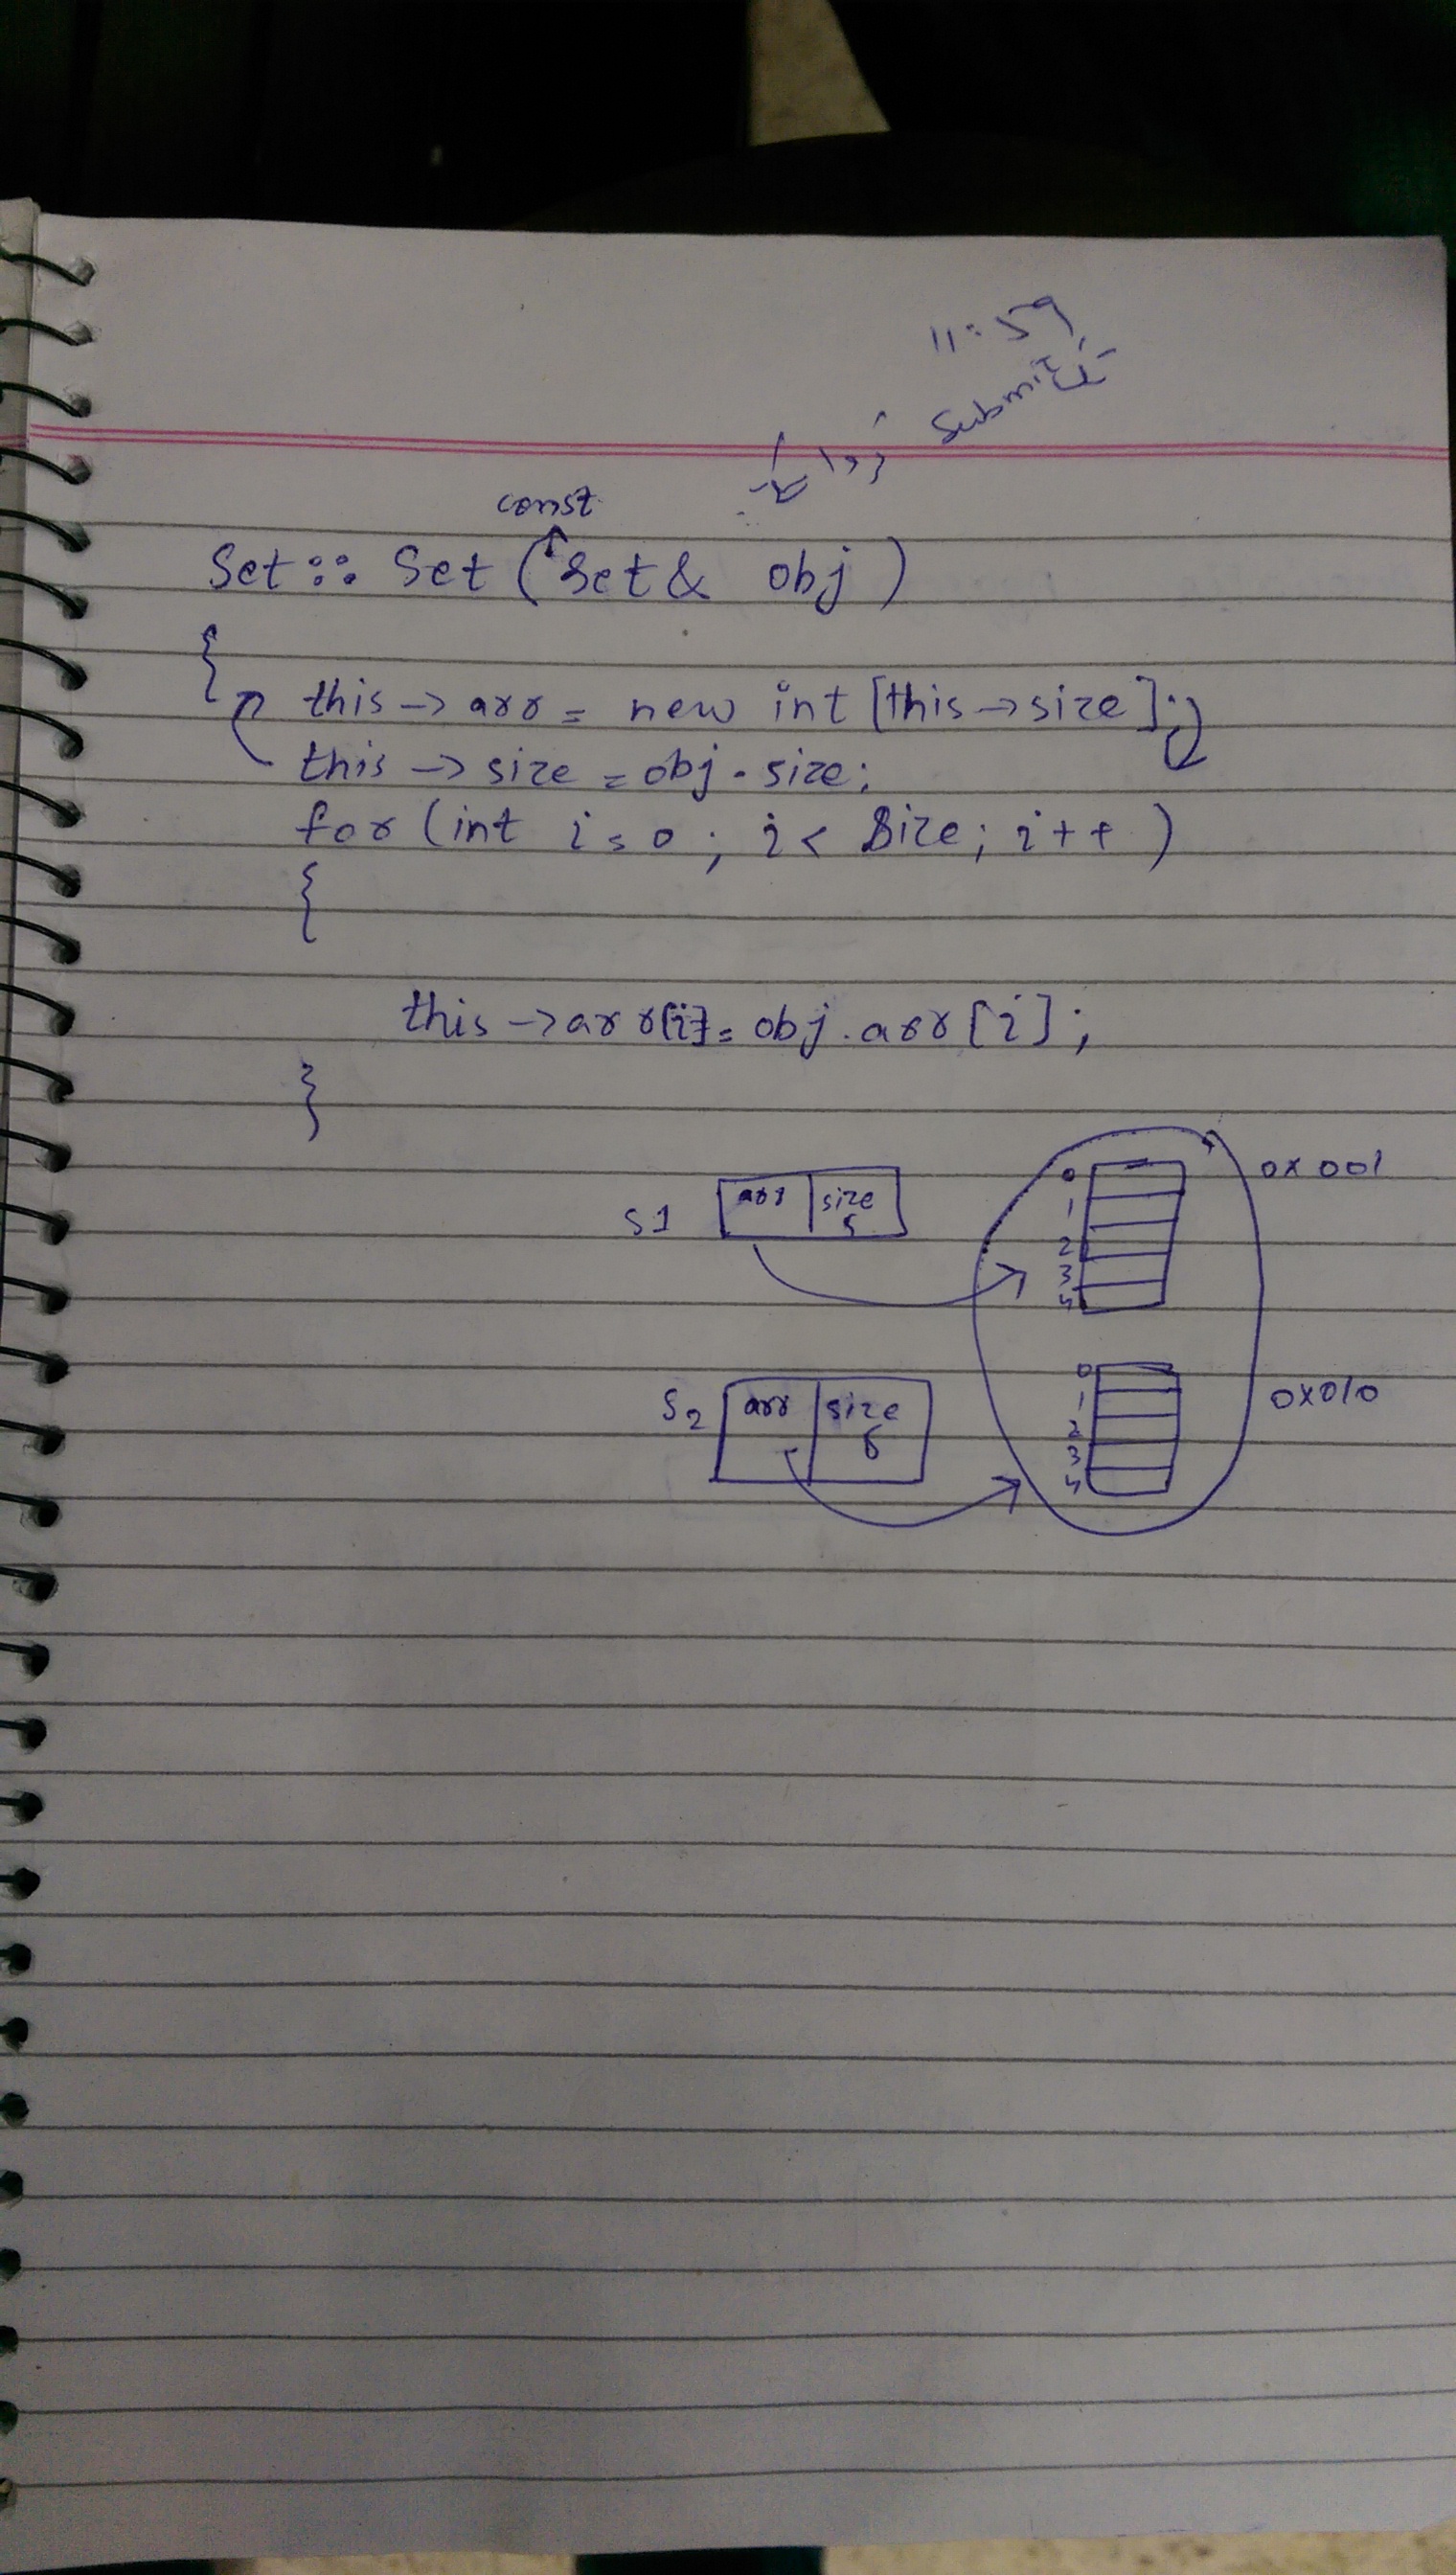 11:59
Submit
const
Set :: Set ( Set & obj )
{
this -> arr = new int [this -> size];
this -> size = obj . size;
for (int i = 0 ; i < Size; i++ )
{
this -> arr[i] = obj . arr [i] ;
}
S1 arr size 5
0 1 2 3 4
0x001
S2 arr size
0 1 2 3 4
0x010